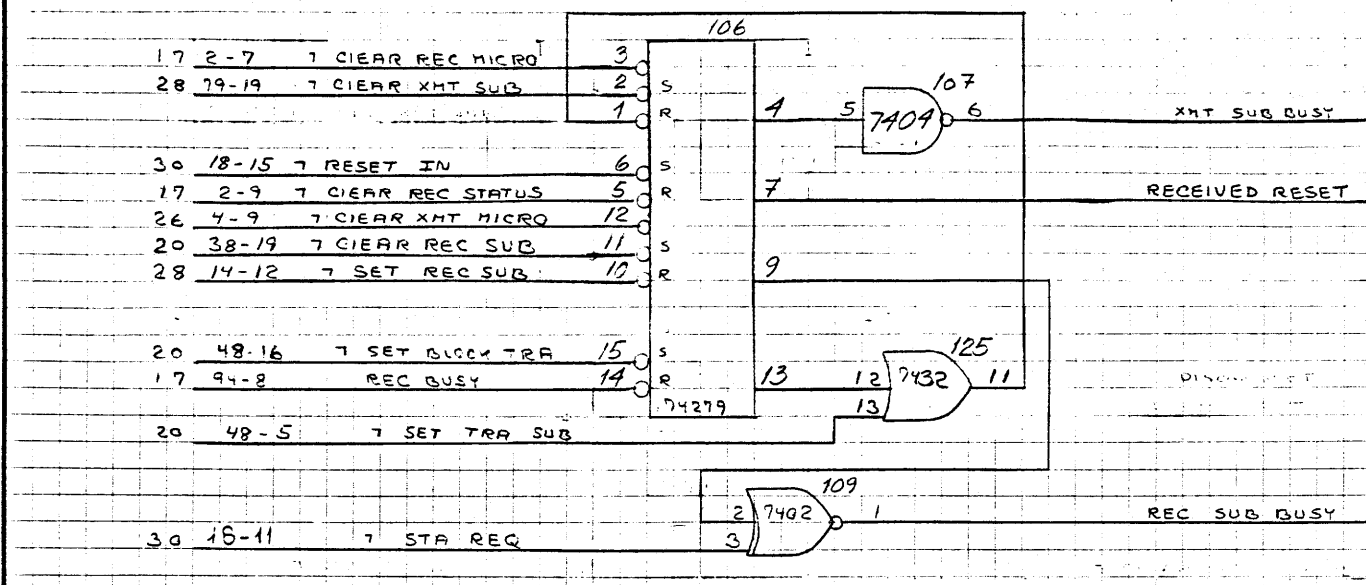 106
17 2-7 ¬ CLEAR REC MICRO 3
28 79-19 ¬ CLEAR XMT SUB 2 S
1 R 4 5 7404 6 XMT SUB BUSY
107
30 18-15 ¬ RESET IN 6 S
17 2-9 ¬ CLEAR REC STATUS 5 R 7 RECEIVED RESET
26 4-9 ¬ CLEAR XMT MICRO 12
20 38-19 ¬ CLEAR REC SUB 11 S
28 14-12 ¬ SET REC SUB 10 R 9
20 48-16 ¬ SET BLOCK TRA 15 S 125
17 94-8 REC BUSY 14 R 13 12 7432 11
74279 13
20 48-5 ¬ SET TRA SUB
109
2 7402 1 REC SUB BUSY
30 18-11 ¬ STA REQ 3